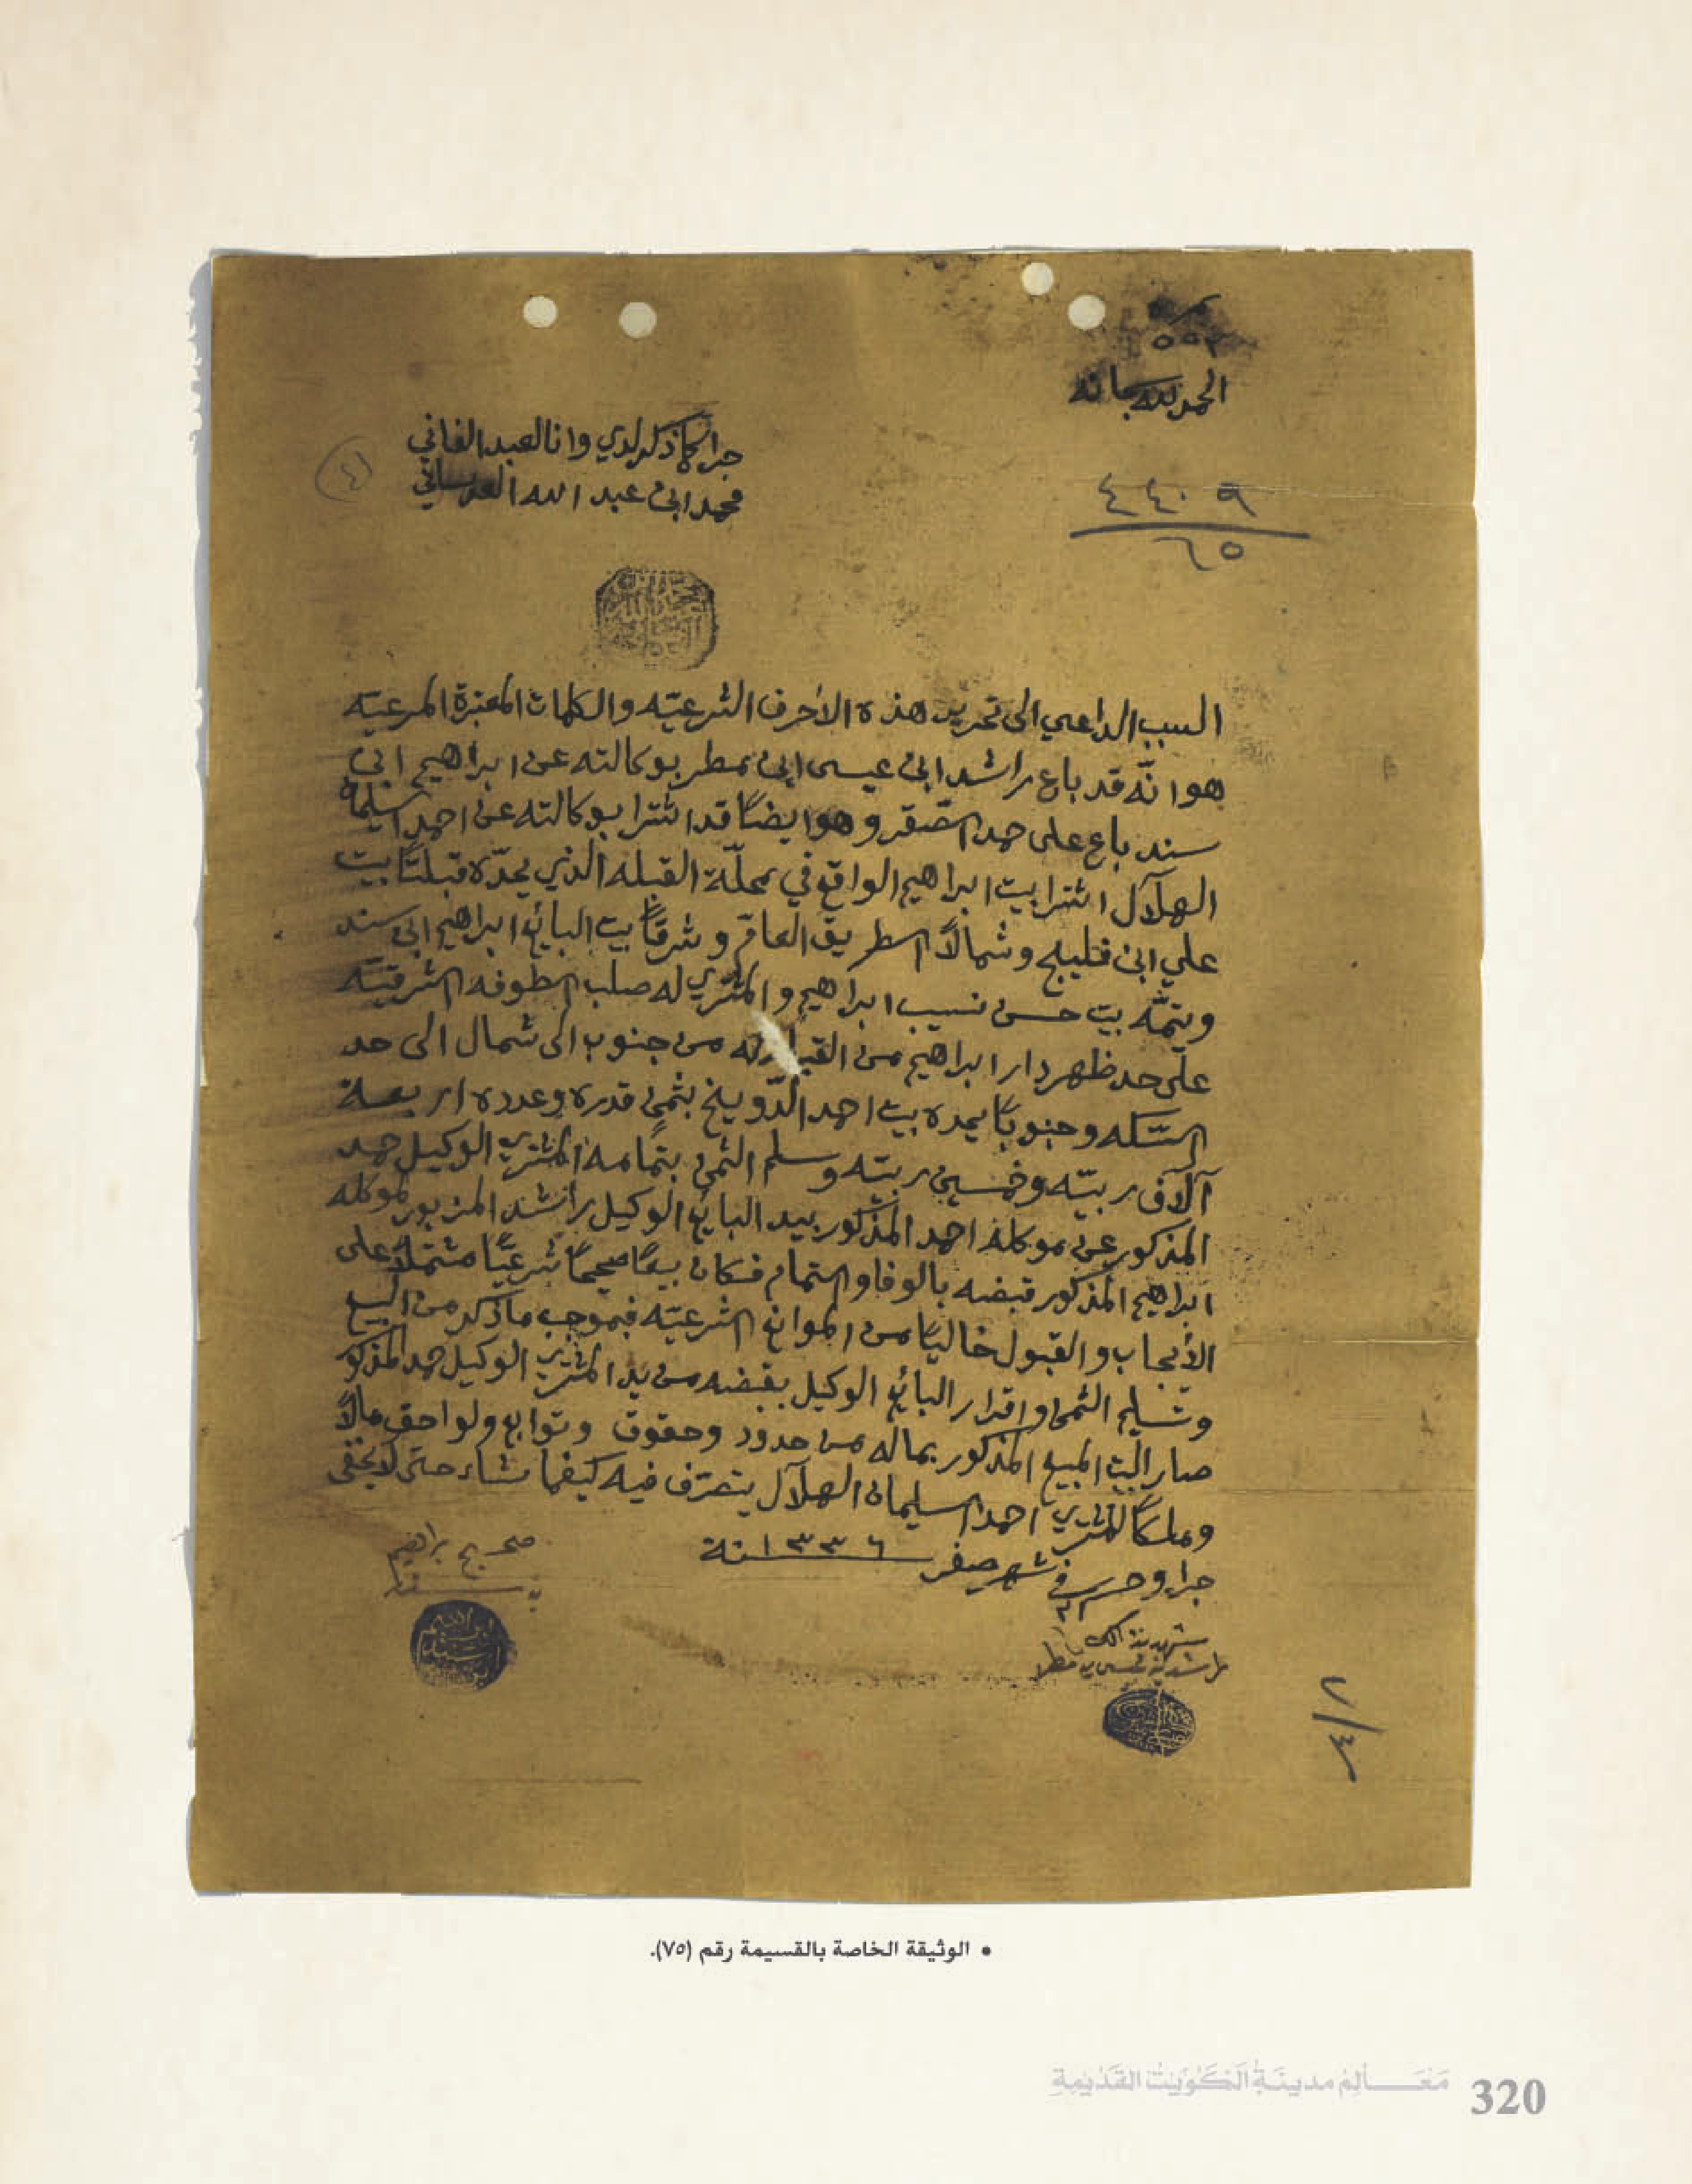 الحمد لله سبحانه
٤٤٠٩
٦٥
جرا كما ذكر لدي وانا العبد الفاني
محمد ابن عبد الله العدساني
(٤١)
السبب الداعي الى تحرير هذه الأحرف الشرعيّه والكلمات المعتبرة المرعيّه
هو انّه قد باع راشد ابن عيسى ابن مطر بوكالته عن ابراهيم ابن
سند باع على حمد الصّقر وهو ايضًا قد اشترا بوكالته عن احمد السليمان
الهلآل اشترا بيت ابراهيم الواقع في محلّة القبله الذي يحدّه قبلتًا بيت
علي ابن فليج وشمالًا الطريق العامّ وشرقًا بيت البايع ابراهيم ابن سند
ويتمّه بيت حسن نسيب ابراهيم والمشتري له صلب الطوفه الشرقيّه
على حد ظهر دار ابراهيم من جنوب الى شمال الى حد
السّكه وجنوبًا يحده بيت احمد الدّويخ بثمن قدره وعدده اربعة
آلآف ربيّه وخمسين ربيّه وسلم الثمن بتمامه المشتري الوكيل حمد
المذكور عن موكله احمد المذكور بيد البايع الوكيل راشد المزبور لموكله
ابراهيم المذكور قبضه بالوفا والتمام فكان بيعًا صحيحًا شرعيًّا مشتملًا على
الأيجاب والقبول خاليًا من الموانع الشرعيّه فبموجب ما ذكر من البيع
وتسليم الثمن واقرار البائع الوكيل بقبضه من يد المشتري الوكيل حمد المذكور
صار البيت المبيع المذكور بماله من حدود وحقوق وتوابع ولواحق مالًا
وملكًا للمشتري احمد السليمان الهلآل يتصرّف فيه كيفما شاء حتى لا يخفى
جرا وحرر في ٢١ شهر صفر ١٣٣٦ سنة
صحيح براهيم
بن سند
شهد بذالك
راشد بن عيسى بن مطر
٧/٤
• الوثيقة الخاصة بالقسيمة رقم (٧٥).
مَعَـالِمُ مدينَـةِ الكُوَيْتِ القَدْيمةِ
320